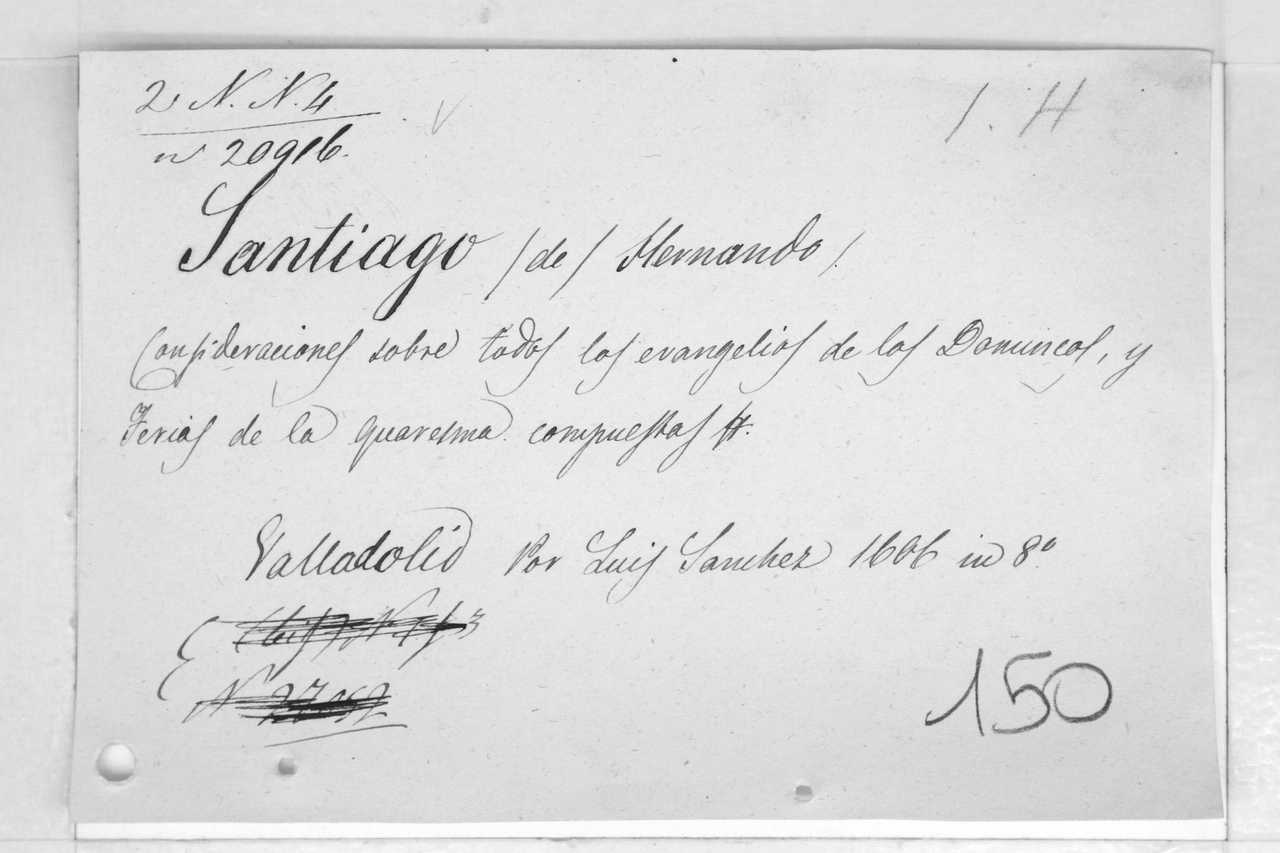 2, N. N. 4
1. H
n 20916.
Santiago /de/ Hernando/.
Consideraciones sobre todos los evangelios de los Domincos, y
Ferias de la quaresma compuestas
Valladolid Por Luis Sanchez 1606 in 8º
150